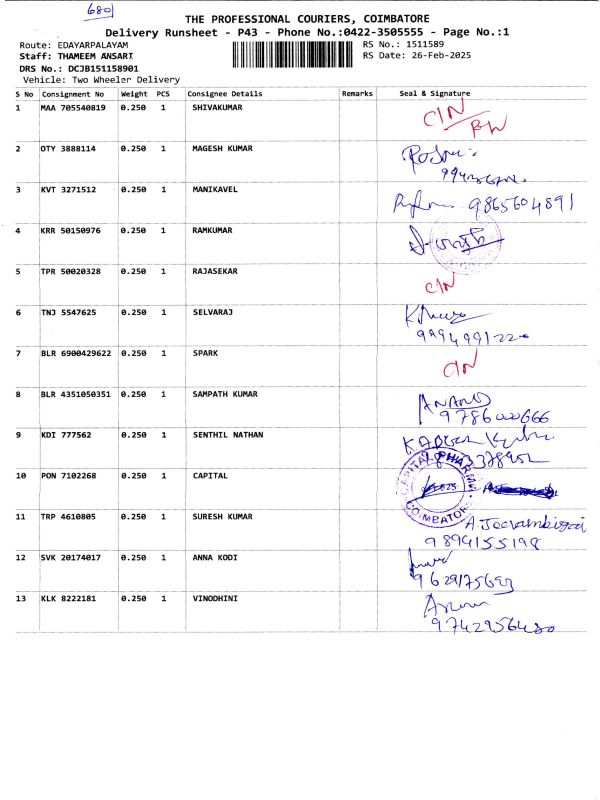 680
THE PROFESSIONAL COURIERS, COIMBATORE
Delivery Runsheet - P43 - Phone No.:0422-3505555 - Page No.:1
Route: EDAYARPALAYAM
RS No.: 1511589
Staff: THAMEEM ANSARI
RS Date: 26-Feb-2025
DRS No.: DCJB151158901
Vehicle: Two Wheeler Delivery
S No Consignment No Weight PCS Consignee Details Remarks Seal & Signature
1 MAA 705540819 0.250 1 SHIVAKUMAR C/N
2 OTY 3888114 0.250 1 MAGESH KUMAR
3 KVT 3271512 0.250 1 MANIKAVEL 9865604891
4 KRR 50150976 0.250 1 RAMKUMAR
5 TPR 50020328 0.250 1 RAJASEKAR C/N
6 TNJ 5547625 0.250 1 SELVARAJ
7 BLR 6900429622 0.250 1 SPARK C/N
8 BLR 4351050351 0.250 1 SAMPATH KUMAR ANAND
9786000666
9 KDI 777562 0.250 1 SENTHIL NATHAN
10 PON 7102268 0.250 1 CAPITAL CAPITAL PHARMA
COIMBATORE
11 TRP 4610805 0.250 1 SURESH KUMAR
9894155198
12 SVK 20174017 0.250 1 ANNA KODI
13 KLK 8222181 0.250 1 VINODHINI